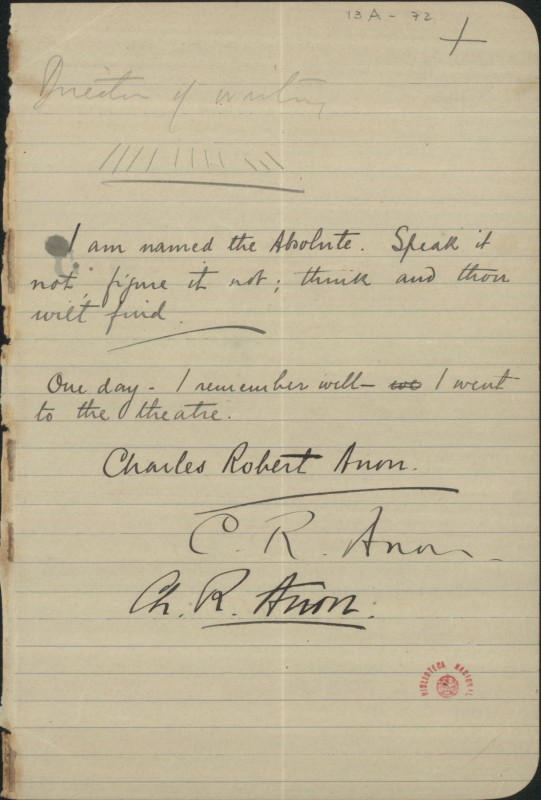 13A - 72
Direction of writing
I am named the Absolute. Speak it
not, figure it not; think and thou
wilt find.
One day - I remember well - we I went
to the theatre.
Charles Robert Anon.
C. R. Anon.
Ch. R. Anon.
BIBLIOTECA NACIONAL